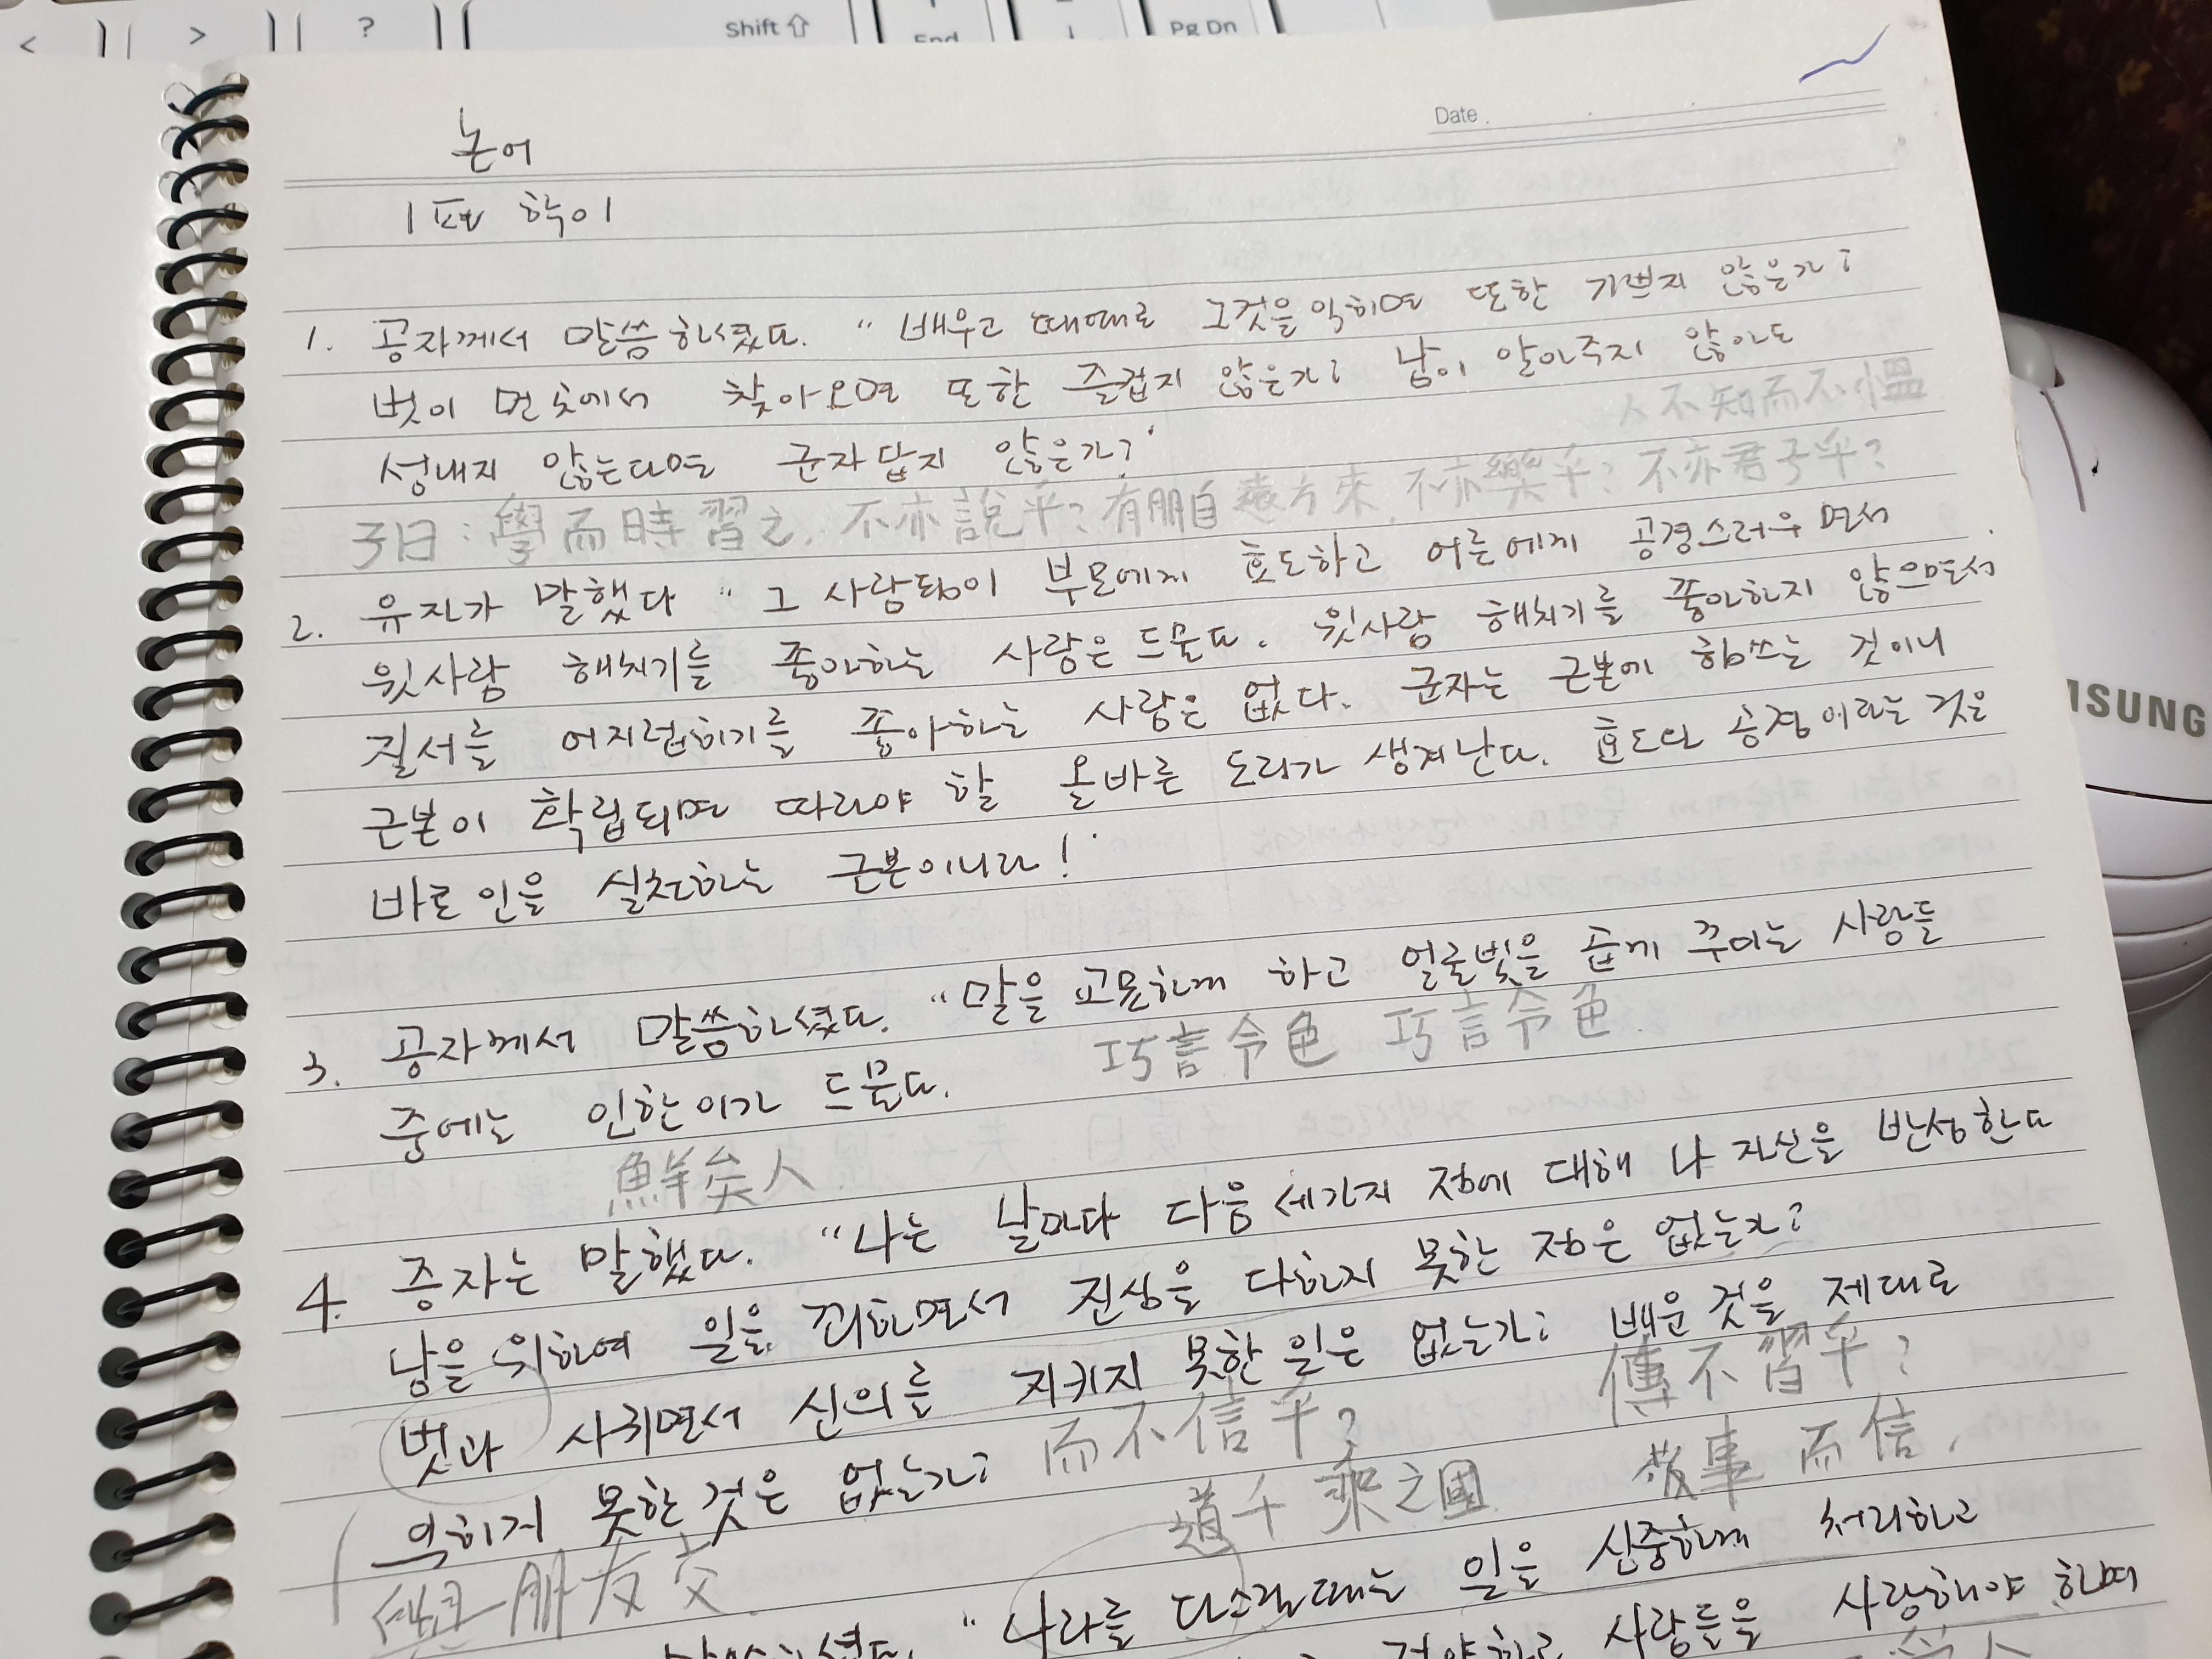 < > ? Shift ⇧ End ↓ Pg Dn
Date.
논어
1편 학이
1. 공자께서 말씀하셨다. "배우고 때때로 그것을 익히면 또한 기쁘지 않은가?
벗이 먼 곳에서 찾아오면 또한 즐겁지 않은가? 남이 알아주지 않아도
人不知而不慍
성내지 않는다면 군자답지 않은가?"
子曰: 學而時習之, 不亦說乎? 有朋自遠方來, 不亦樂乎? 不亦君子乎?
2. 유자가 말했다 "그 사람됨이 부모에게 효도하고 어른에게 공경스러우면서
윗사람 해치기를 좋아하는 사람은 드물다. 윗사람 해치기를 좋아하지 않으면서
질서를 어지럽히기를 좋아하는 사람은 없다. 군자는 근본에 힘쓰는 것이니
근본이 확립되면 따라야 할 올바른 도리가 생겨난다. 효도와 공경이라는 것은
바로 인을 실천하는 근본이니라!"
SAMSUNG
3. 공자께서 말씀하셨다. "말을 교묘하게 하고 얼굴빛을 곱게 꾸미는 사람들
巧言令色 巧言令色
중에는 인한 이가 드물다.
鮮矣人
4. 증자는 말했다. "나는 날마다 다음 세가지 점에 대해 나 자신을 반성한다
남을 위하여 일을 꾀하면서 진심을 다하지 못한 점은 없는가?
벗과 사귀면서 신의를 지키지 못한 일은 없는가? 배운 것을 제대로
而不信乎? 傳不習乎?
익히지 못한 것은 없는가?
道千乘之國 敬事而信,
朋友交
"나라를 다스릴 때는 일을 신중하게 처리하고
사람들을 사랑해야 하며